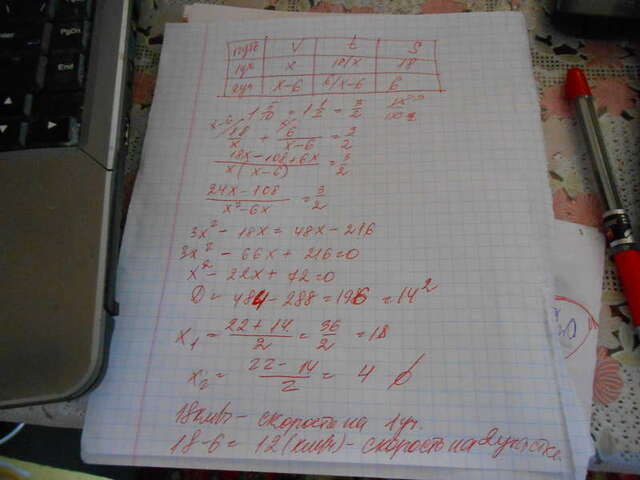 V t S
1уч x 18/x 18
2уч x-6 6/x-6 6
= 1 1/2 = 3/2
18/x + 6/x-6 = 3/2
18x-108+6x / x(x-6) = 3/2
24x-108 / x²-6x = 3/2
3x²-18x = 48x-216
3x²-66x+216=0
x²-22x+72=0
D = 484-288=196=14²
x₁ = 22+14/2 = 36/2 = 18
x₂ = 22-14/2 = 4 ∅
18км/ч - скорость на 1уч.
18-6 = 12 (км/ч) - скорость на 2участке.
PgDn
End